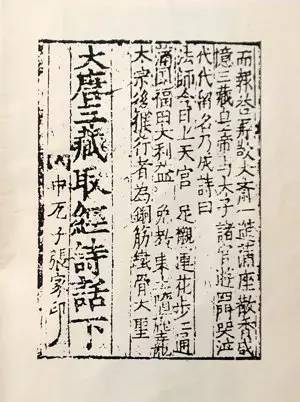 而報答尋設大齋一筵滿座散香咸
憶三藏皇帝与太子諸官遊四門哭泣
代代留名乃成詩曰
法師今日上天宮 足襯蓮花步〻通
滿國福田大利益 免教東土墮塵籠
太宗後封猴行者為銅筋鐵骨大聖
大唐三藏取經詩話下
中瓦子張家印